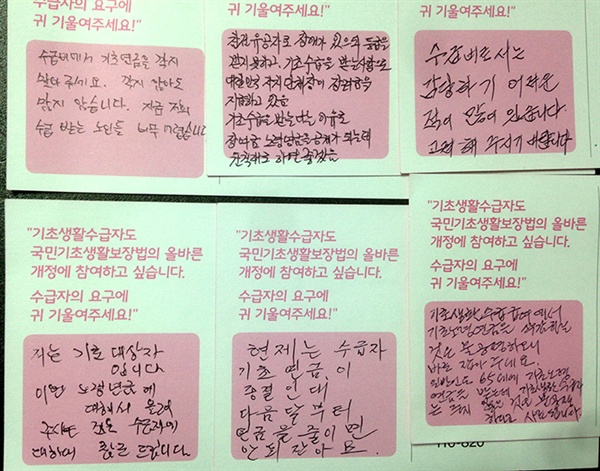 수급자의 요구에
귀 기울여주세요!"
수급비에서 기초연금을 깎지
말아 주세요. 깎지 않아도
많지 않습니다. 지금 저희
수급 받는 노인들 너무
수급자의 요구에
귀 기울여주세요!"
참전유공자로 장애가 있으며 등급을
받지 못하고 기초수급을 받는사람으로
대한민국
지급하고 있음
기초수급을 받는다는 이유로
수급자의 요구에
귀 기울여주세요!"
수급비로서는
감당하기 어려운
적이 많이 있습니다
고려 해 주시기 바랍니다
"기초생활수급자도
국민기초생활보장법의 올바른
개정에 참여하고 싶습니다.
수급자의 요구에
귀 기울여주세요!"
저는 기초 대상자
입니다
이번 노령년금에
대해서 올려
주시면
대하여 드립니다.
"기초생활수급자도
국민기초생활보장법의 올바른
개정에 참여하고 싶습니다.
수급자의 요구에
귀 기울여주세요!"
현제는 수급자
기초연금이
중절인대
다음달부터
연금을 줄이면
안되잔아요.
"기초생활수급자도
국민기초생활보장법의 올바른
개정에 참여하고 싶습니다.
수급자의 요구에
귀 기울여주세요!"
기초생활 수급급여에서
기초노령연금을 삭감하실
것은 불공평하오니
바로 잡아 주세요.
일반인도 65세에 기초노령
연금을 받는데 기초생활수급자
는 주지 않은 것은
사료됩니다.
110-820